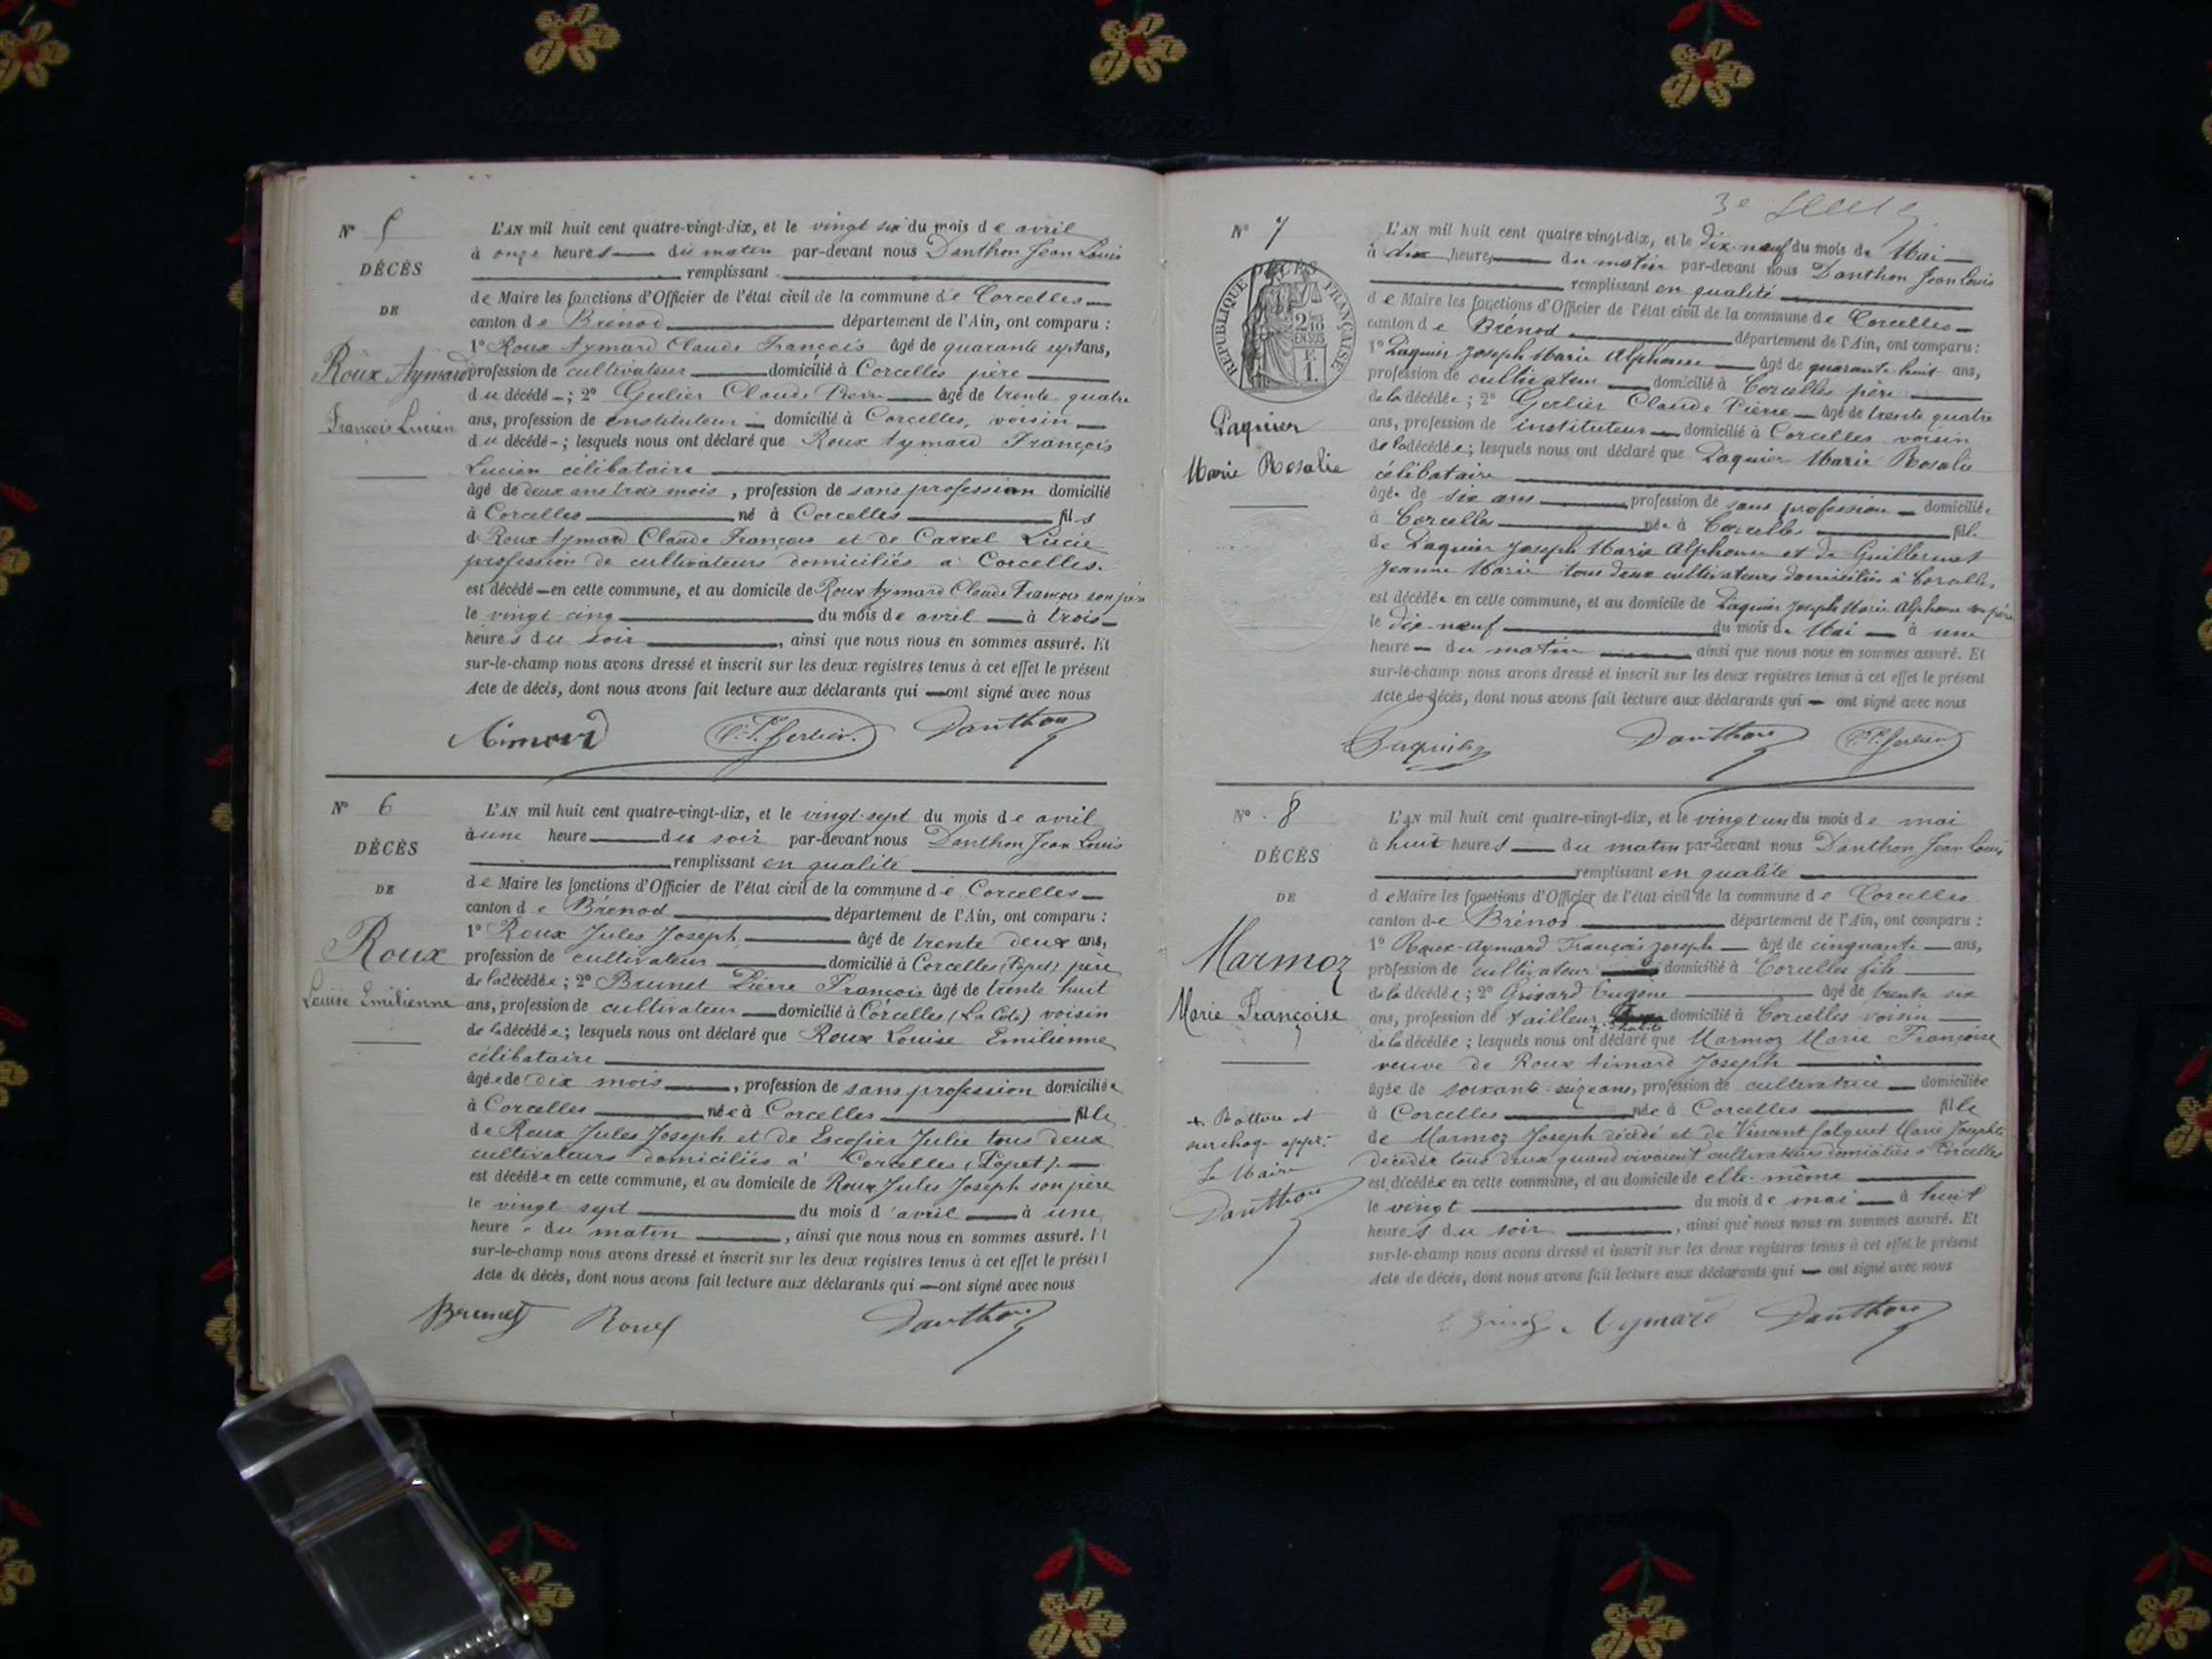 N° 5
DÉCÈS
DE
Roux Aymard
François Lucien
L'AN mil huit cent quatre-vingt-dix, et le vingt six du mois de avril
à onze heures du matin par-devant nous Danthon Jean Louis
remplissant
de Maire les fonctions d'Officier de l'état civil de la commune de Corcelles
canton de Brénod département de l'Ain, ont comparu :
1° Roux Aymard Claude François âgé de quarante sept ans,
profession de cultivateur domicilié à Corcelles père
du décédé ; 2° Gerlier Claude Pierre âgé de trente quatre
ans, profession de instituteur domicilié à Corcelles, voisin
du décédé ; lesquels nous ont déclaré que Roux Aymard François
Lucien célibataire
âgé de deux ans trois mois, profession de sans profession domicilié
à Corcelles né à Corcelles fils
de Roux Aymard Claude François et de Carrel Lucie
profession de cultivateurs domiciliés à Corcelles.
est décédé en cette commune, et au domicile de Roux Aymard Claude François son père
le vingt cinq du mois de avril à trois
heures du soir, ainsi que nous nous en sommes assuré. Et
sur-le-champ nous avons dressé et inscrit sur les deux registres tenus à cet effet le présent
Acte de décès, dont nous avons fait lecture aux déclarants qui ont signé avec nous
Aimard C.P. Gerlier. Danthon
N° 6
DÉCÈS
DE
Roux
Louise Emilienne
L'AN mil huit cent quatre-vingt-dix, et le vingt-sept du mois de avril
à une heure du soir par-devant nous Danthon Jean Louis
remplissant en qualité
de Maire les fonctions d'Officier de l'état civil de la commune de Corcelles
canton de Brénod département de l'Ain, ont comparu :
1° Roux Jules Joseph âgé de trente deux ans,
profession de cultivateur domicilié à Corcelles (Popet) père
de la décédée ; 2° Brunet Pierre François âgé de trente huit
ans, profession de cultivateur domicilié à Corcelles (La Côte) voisin
de la décédée ; lesquels nous ont déclaré que Roux Louise Emilienne
célibataire
âgée de dix mois, profession de sans profession domiciliée
à Corcelles née à Corcelles fille
de Roux Jules Joseph et de Escofier Julie tous deux
cultivateurs domiciliés à Corcelles (Popet).
est décédée en cette commune, et au domicile de Roux Jules Joseph son père
le vingt-sept du mois d'avril à une
heure du matin, ainsi que nous nous en sommes assuré. Et
sur-le-champ nous avons dressé et inscrit sur les deux registres tenus à cet effet le présent
Acte de décès, dont nous avons fait lecture aux déclarants qui ont signé avec nous
Brunet Roux Danthon
3e
N° 7
DÉCÈS
RÉPUBLIQUE FRANÇAISE
2/10 EN SUS
F. 1.
Paquier
Marie Rosalie
L'AN mil huit cent quatre-vingt-dix, et le dix-neuf du mois de Mai
à dix heures du matin par-devant nous Danthon Jean Louis
remplissant en qualité
de Maire les fonctions d'Officier de l'état civil de la commune de Corcelles
canton de Brénod département de l'Ain, ont comparu :
1° Paquier Joseph Marie Alphonse âgé de quarante-huit ans,
profession de cultivateur domicilié à Corcelles père
de la décédée ; 2° Gerlier Claude Pierre âgé de trente quatre
ans, profession de instituteur domicilié à Corcelles voisin
de la décédée ; lesquels nous ont déclaré que Paquier Marie Rosalie
célibataire
âgée de six ans, profession de sans profession domiciliée
à Corcelles née à Corcelles fille
de Paquier Joseph Marie Alphonse et de Guillermet
Jeanne Marie tous deux cultivateurs domiciliés à Corcelles
est décédée en cette commune, et au domicile de Paquier Joseph Marie Alphonse son père
le dix-neuf du mois de Mai à une
heure du matin ainsi que nous nous en sommes assuré. Et
sur-le-champ nous avons dressé et inscrit sur les deux registres tenus à cet effet le présent
Acte de décès, dont nous avons fait lecture aux déclarants qui ont signé avec nous
Paquier Danthon C.P. Gerlier
N° 8
DÉCÈS
DE
Marmoz
Marie Françoise
L'AN mil huit cent quatre-vingt-dix, et le vingt un du mois de mai
à huit heures du matin par-devant nous Danthon Jean Louis
remplissant en qualité
de Maire les fonctions d'Officier de l'état civil de la commune de Corcelles
canton de Brénod département de l'Ain, ont comparu :
1° Roux-Aymard François Joseph âgé de cinquante ans,
profession de cultivateur domicilié à Corcelles fils
de la décédée ; 2° Grisard Eugène âgé de trente six
ans, profession de tailleur domicilié à Corcelles voisin
de la décédée ; lesquels nous ont déclaré que Marmoz Marie Françoise
veuve de Roux Aimard Joseph
âgée de soixante-seize ans, profession de cultivatrice domiciliée
à Corcelles née à Corcelles fille
de Marmoz Joseph décédé et de Vincent Jalquet Marie Josephte
décédée tous deux quand vivaient cultivateurs domiciliés à Corcelles
est décédée en cette commune, et au domicile de elle-même
le vingt du mois de mai à huit
heures du soir, ainsi que nous nous en sommes assuré. Et
sur-le-champ nous avons dressé et inscrit sur les deux registres tenus à cet effet le présent
Acte de décès, dont nous avons fait lecture aux déclarants qui ont signé avec nous
Le Maire
Danthon
Aymard Danthon